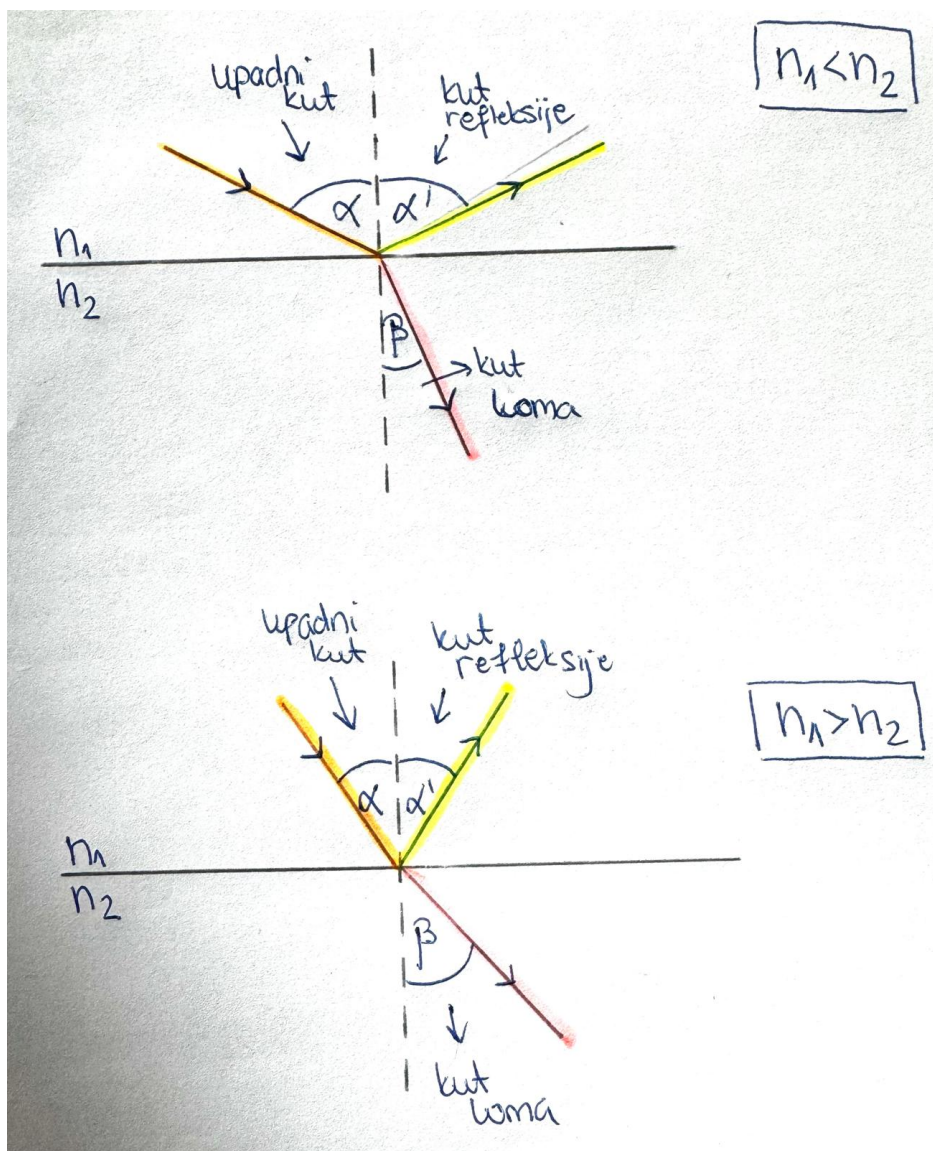 n₁<n₂
upadni
kut
kut
refleksije
α α'
n₁
n₂
β
kut
loma
upadni
kut
kut
refleksije
n₁>n₂
α α'
n₁
n₂
β
kut
loma